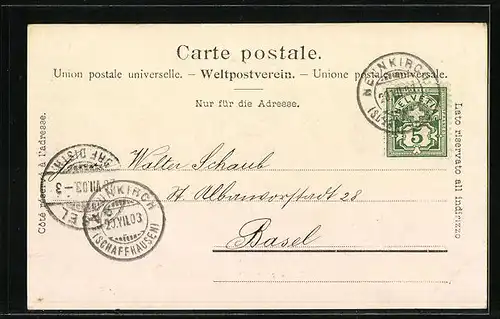 Carte postale.
Union postale universelle. – Weltpostverein. – Unione postale universale.
Nur für die Adresse.
NEUNKIRCH
HELVETIA
5
Côté réservé à l'adresse.
Lato riservato all indirizzo
Walter Schaub
St. Albanvorstadt 28
Basel
BRF. DISTR.
VII.03 – 3
NEUNKIRCH
20.VII.03
(SCHAFFHAUSEN)